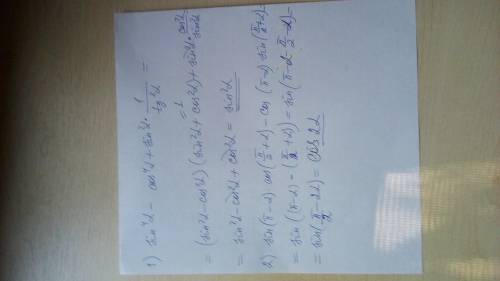 1) sin⁴α − cos⁴α + sin²α · 1/tg²α =
= (sin²α − cos²α)(sin²α + cos²α) + sin²α · cos²α/sin²α =
= sin²α − cos²α + cos²α = sin²α
2) sin(π−α) cos(π/2+α) − cos(π−α) sin(π/2+α) =
= sin((π−α) − (π/2+α)) = sin(π−α−π/2−α) =
= sin(π/2−2α) = cos 2α